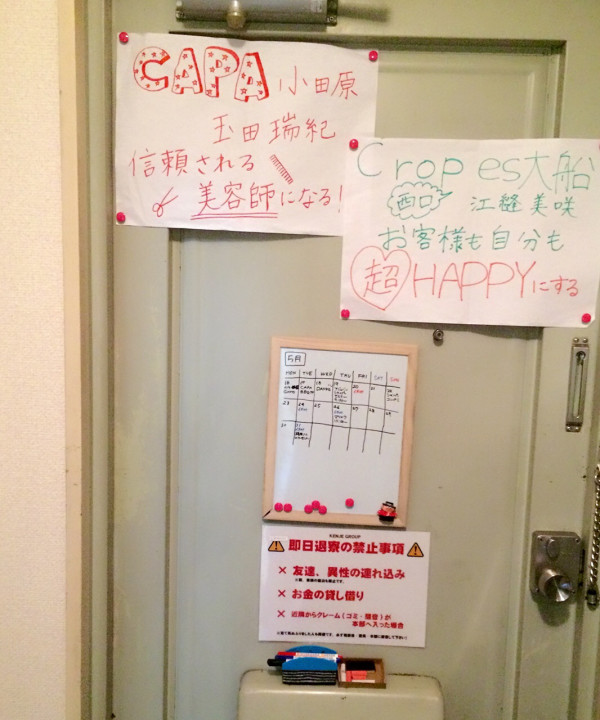 CAPA 小田原
玉田瑞紀
信頼される
美容師になる!
Crop es大船
西口 江縫美咲
お客様も自分も
超HAPPYにする
5月
MON TUE WED THU FRI SAT SUN
16 17 18 19 20 21 22
23 24 25 26 27 28 29
30 31
KENJE GROUP
即日退寮の禁止事項
× 友達、異性の連れ込み
× お金の貸し借り
× 近隣からクレーム(ゴミ・騒音)が
本部へ入った場合